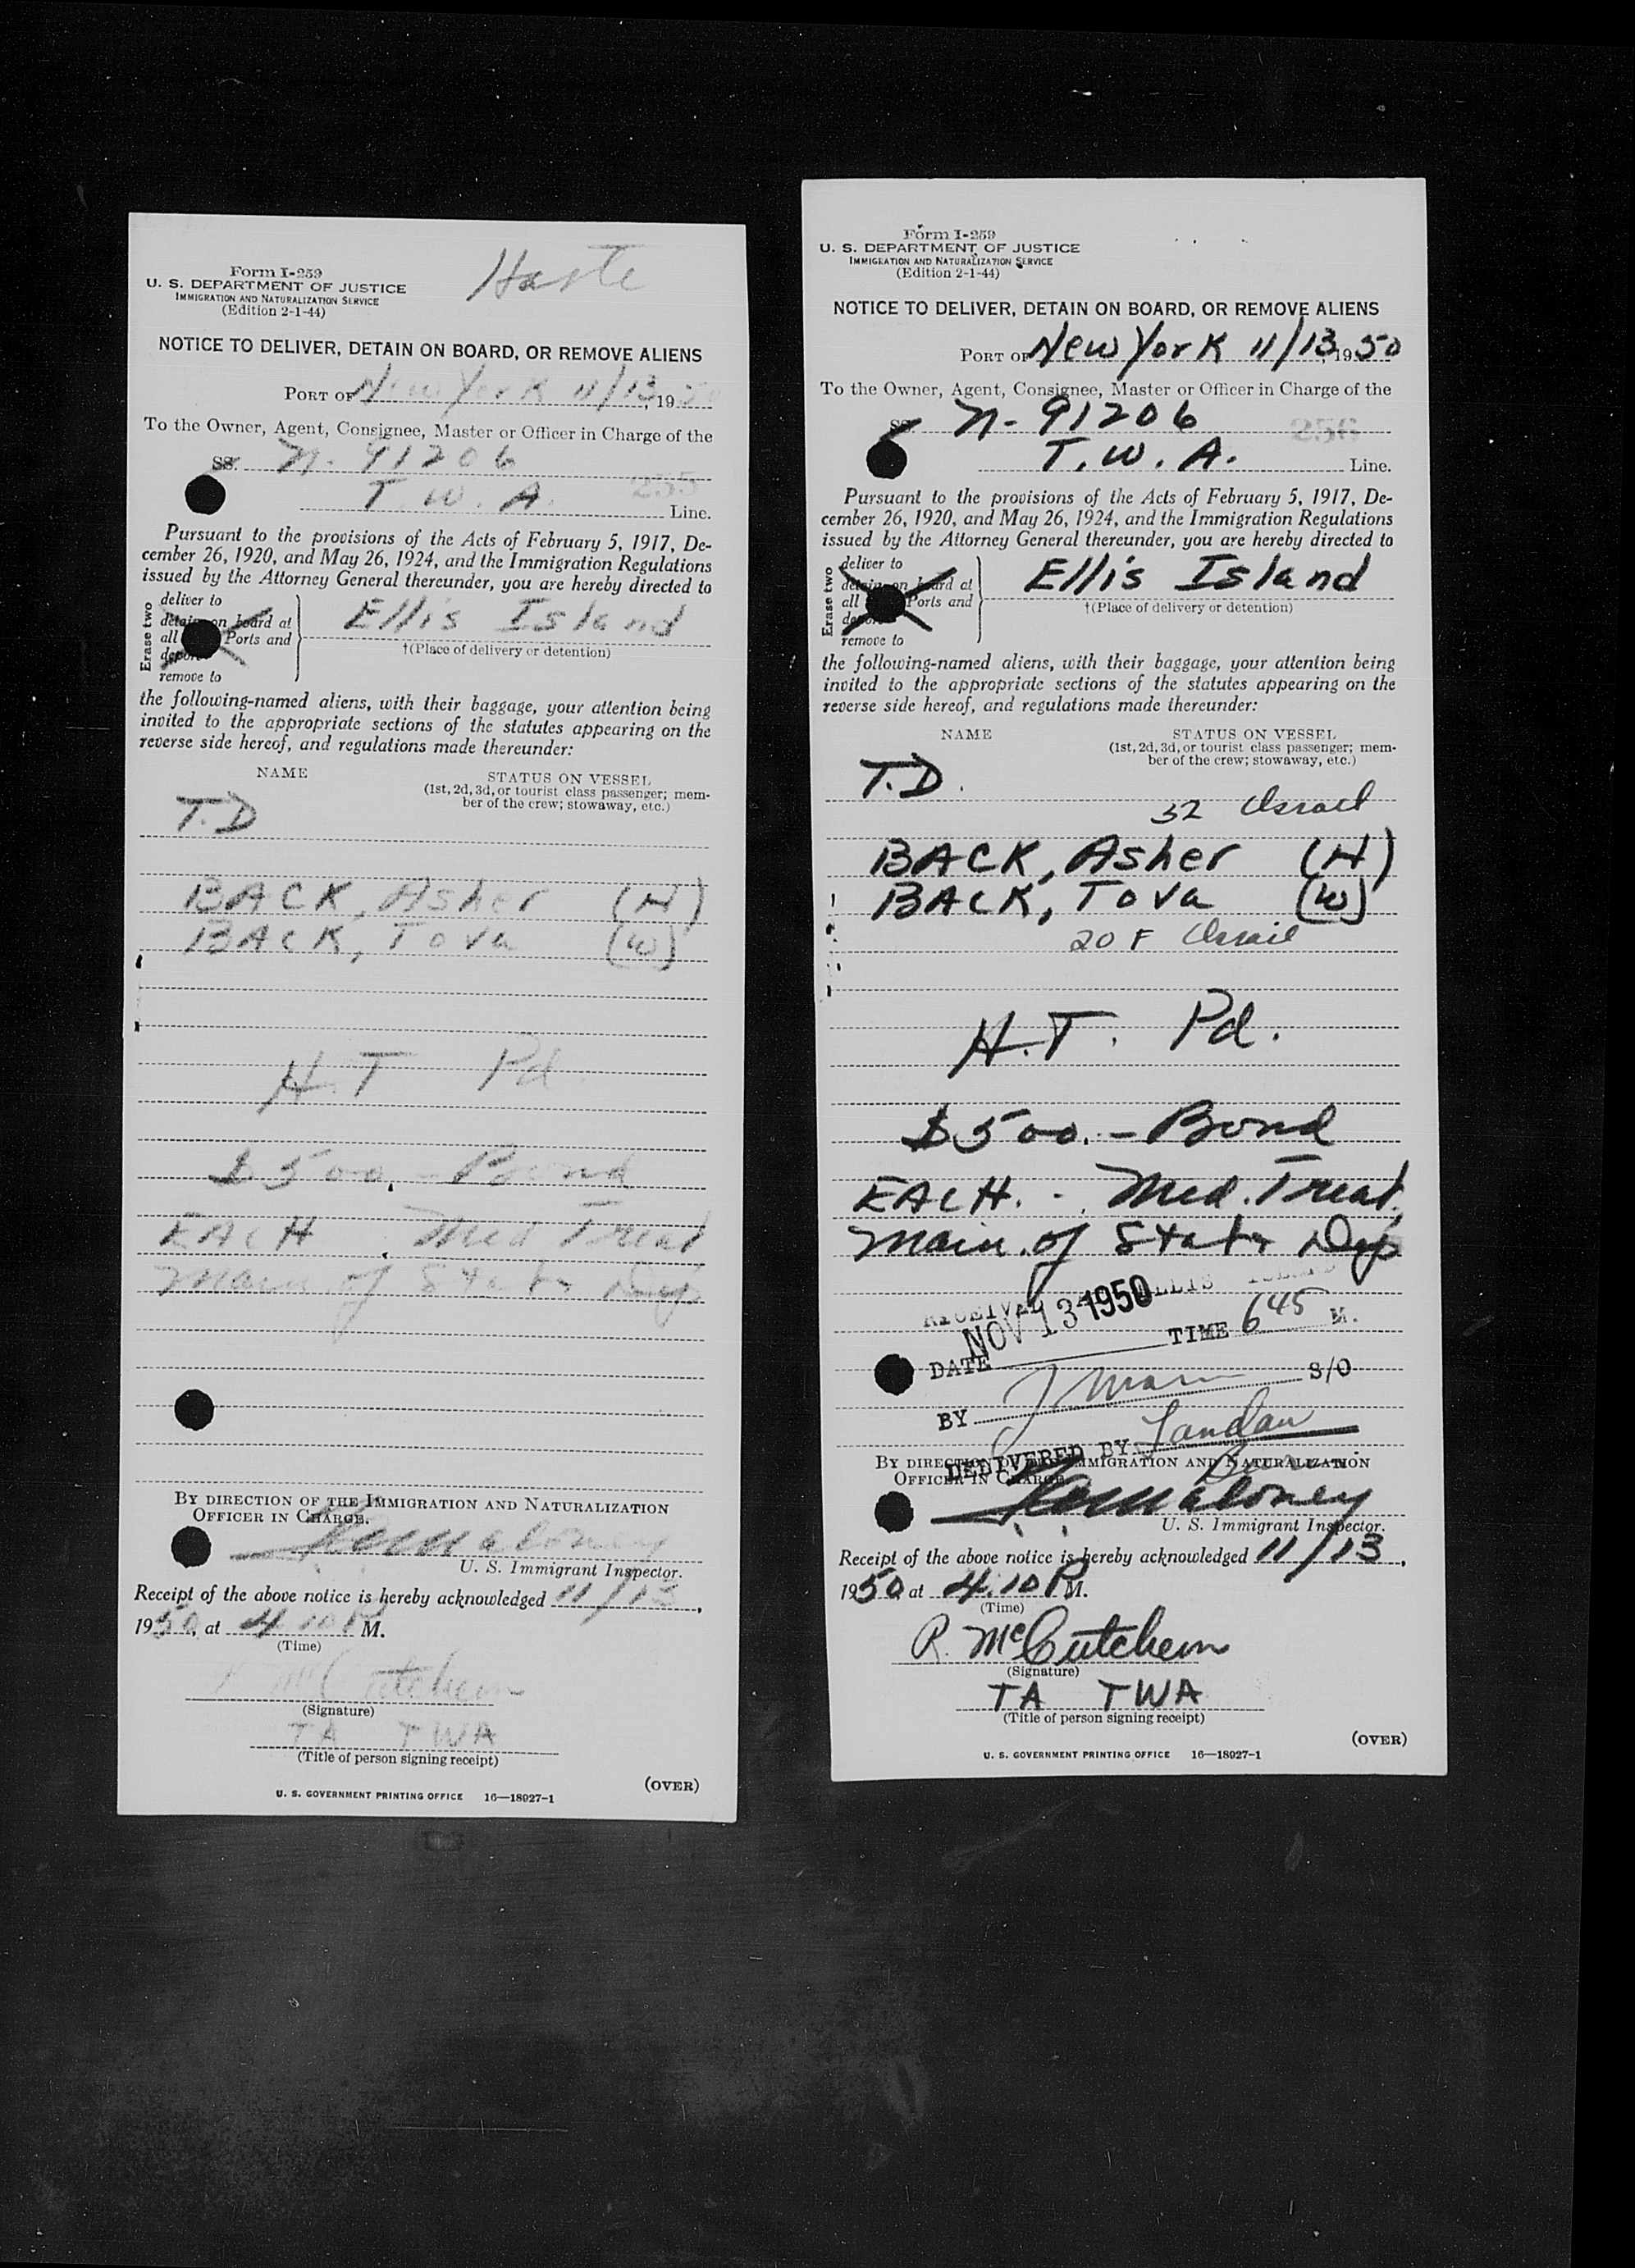 Form I-259
U. S. DEPARTMENT OF JUSTICE
IMMIGRATION AND NATURALIZATION SERVICE
(Edition 2-1-44)
NOTICE TO DELIVER, DETAIN ON BOARD, OR REMOVE ALIENS
PORT OF New York 11/13, 1950
To the Owner, Agent, Consignee, Master or Officer in Charge of the
SS. N-91206
255
T. W. A. Line.
Pursuant to the provisions of the Acts of February 5, 1917, De-
cember 26, 1920, and May 26, 1924, and the Immigration Regulations
issued by the Attorney General thereunder, you are hereby directed to
Erase two
deliver to
detain on board at
all Ports and
remove to
Ellis Island
†(Place of delivery or detention)
the following-named aliens, with their baggage, your attention being
invited to the appropriate sections of the statutes appearing on the
reverse side hereof, and regulations made thereunder:
NAME STATUS ON VESSEL
(1st, 2d, 3d, or tourist class passenger; mem-
ber of the crew; stowaway, etc.)
T.D
BACK, Asher (H)
BACK, Tova (W)
H.T Pd
$500. - Bond
EACH . Med Treat
Main. of Status Dep
BY DIRECTION OF THE IMMIGRATION AND NATURALIZATION
OFFICER IN CHARGE.
Maloney
U. S. Immigrant Inspector.
Receipt of the above notice is hereby acknowledged 11/13,
1950, at 4.10 P M.
(Time)
R. McCutcheon
(Signature)
TA TWA
(Title of person signing receipt)
(OVER)
U. S. GOVERNMENT PRINTING OFFICE 16—18927-1
Form I-259
U. S. DEPARTMENT OF JUSTICE
IMMIGRATION AND NATURALIZATION SERVICE
(Edition 2-1-44)
NOTICE TO DELIVER, DETAIN ON BOARD, OR REMOVE ALIENS
PORT OF New York 11/13, 1950
To the Owner, Agent, Consignee, Master or Officer in Charge of the
SS. N-91206
256
T. W. A. Line.
Pursuant to the provisions of the Acts of February 5, 1917, De-
cember 26, 1920, and May 26, 1924, and the Immigration Regulations
issued by the Attorney General thereunder, you are hereby directed to
Erase two
deliver to
detain on board at
all Ports and
remove to
Ellis Island
†(Place of delivery or detention)
the following-named aliens, with their baggage, your attention being
invited to the appropriate sections of the statutes appearing on the
reverse side hereof, and regulations made thereunder:
NAME STATUS ON VESSEL
(1st, 2d, 3d, or tourist class passenger; mem-
ber of the crew; stowaway, etc.)
T.D.
32 Israel
BACK, Asher (H)
BACK, Tova (W)
20 F Israel
H.T. Pd.
$500. - Bond
EACH. - Med. Treat.
Main. of Status Dep
ELLIS
DATE NOV 13 1950 TIME 645 M.
BY S/O
DELIVERED BY Landau
BY DIRECTION OF THE IMMIGRATION AND NATURALIZATION
OFFICER IN CHARGE.
Maloney
U. S. Immigrant Inspector.
Receipt of the above notice is hereby acknowledged 11/13,
1950, at 4.10 P M.
(Time)
R. McCutcheon
(Signature)
TA TWA
(Title of person signing receipt)
(OVER)
U. S. GOVERNMENT PRINTING OFFICE 16—18927-1